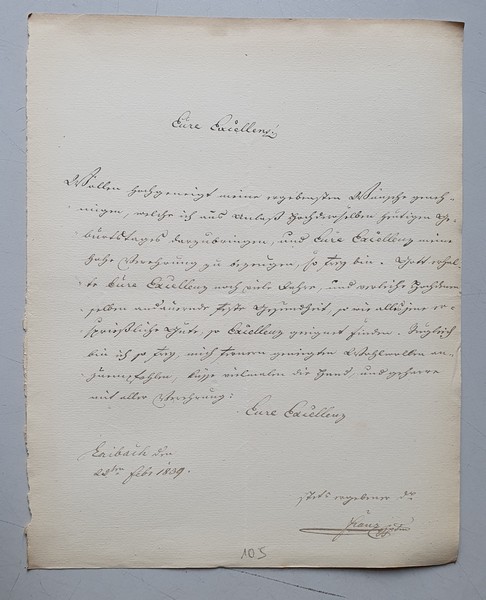 Eure Excellenz!
Wollen hochgeneigt meine ergebensten Wünsche geneh-
migen, welche ich aus Anlaß Hochderoselben heutigen Ge-
burtstages darzubringen, und Eure Excellenz meine
hohe Verehrung zu bezeugen, so frey bin. Gott erhal-
te Eure Excellenz noch viele Jahre, und verleihe Hochden-
selben andauernde feste Gesundheit, so wie alles jene er-
sprießliche Gute, so Excellenz geeignet finden. Zugleich
bin ich so frey, mich fernern geneigten Wohlwollen an-
zuempfehlen, küsse vielmalen die Hand, und geharre
mit aller Verehrung:
Eure Excellenz
Laibach den
22ten Febr 1839.
stets ergebener Dr
Franz
105